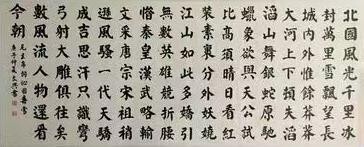 北國風光千里冰
封萬里雪飄望長
城內外惟餘莽莽
大河上下頓失滔
滔山舞銀蛇原馳
蠟象欲與天公試
比高須晴日看紅
裝素裹分外妖嬈
江山如此多嬌引
無數英雄競折腰
惜秦皇漢武略輸
文采唐宗宋祖稍
遜風騷一代天驕
成吉思汗只識彎
弓射大雕俱往矣
數風流人物還看
今朝
毛主席詞沁園春雪